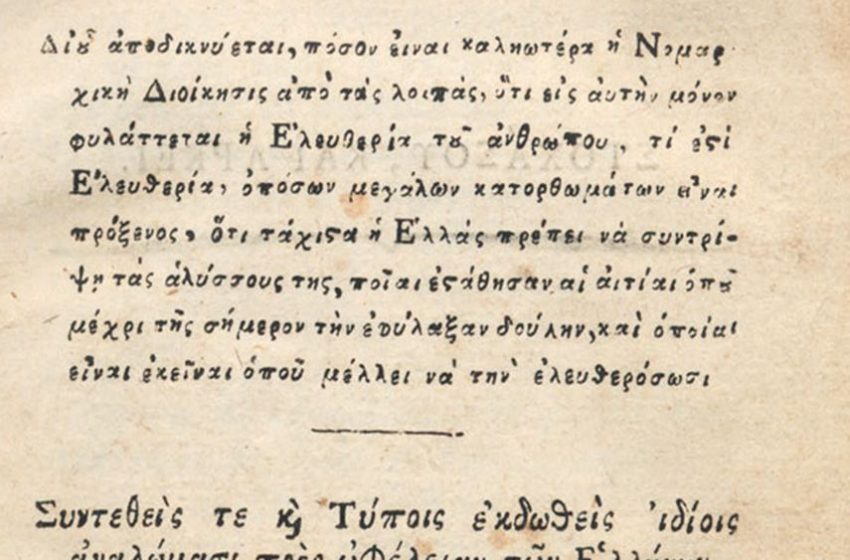 Διȣ̃ ἀποδικνύεται, πόσον ἐιναι καληωτέρα ἡ Νομαρ
χικὴ Διοίκησις ἀπὸ τὰς λοιπάς, ὅτι εἰς ἀυτὴν μόνον
φυλάττεται ἡ Ἐλευθερία τȣ͂ ἀνθρώπου, τί ἐϛὶ
Ἐλευθερία, ὁπόσων μεγάλων κατορθωμάτων εἶναι
πρόξενος, ὅτι τάχιϛα ἡ Ἑλλάς πρέπει νὰ συντρί-
ψη τὰς ἁλύσσους της, ποῖαι ἐϛάθησαν αἱ ἀιτίαι ὁπȣ͂
μέχρι τῆς σήμερον τὴν ἐφύλαξαν δούλην, καὶ ὁποίαι
εἶναι ἐκεῖναι ὁποῦ μέλλει νὰ τὴν ἐλευθερόσωσι
Συντεθεὶς τε ϗ Τύποις ἐκδωθεὶς ἰδίοις
ἀναλώμασι πρὸς ὠφέλειαν τῶν Ἑλλήνων